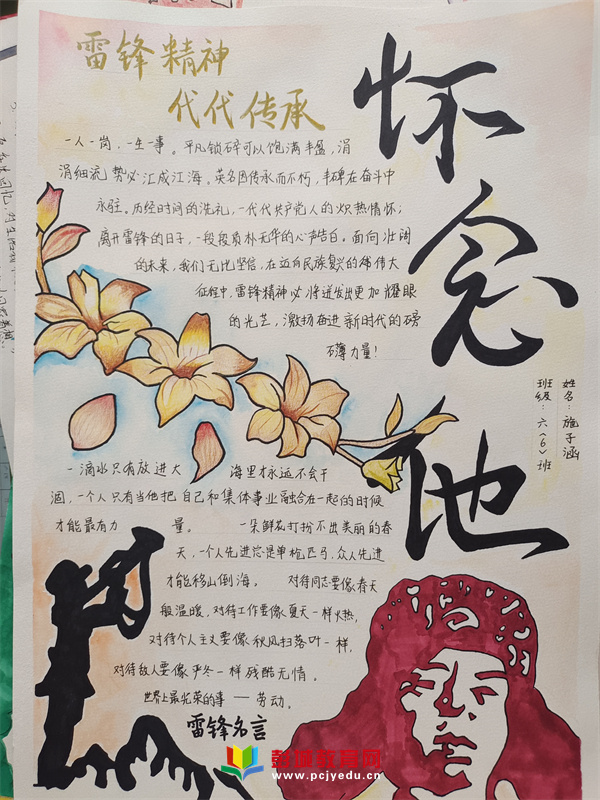 雷锋精神
代代传承
怀念他
一人一岗，一生一事。平凡锁碎可以饱满丰盈，涓
涓细流势必汇成江海。英名因传承而不朽，丰碑在奋斗中
永驻。历经时间的洗礼，一代代共产党人的炽热情怀；
离开雷锋的日子，一段段质朴无华的心声告白。面向壮阔
的未来，我们无比坚信，在迈向民族复兴的伟大
征程中，雷锋精神必将迸发出更加耀眼
的光芒，激扬奋进新时代的磅
礴力量！
姓名：施子涵
班级：六（6）班
一滴水只有放进大海里才永远不会干
涸，一个人只有当他把自己和集体事业融合在一起的时候
才能最有力量。一朵鲜花打扮不出美丽的春
天，一个人先进总是单枪匹马，众人先进
才能移山倒海。对待同志要像春天
般温暖，对待工作要像夏天一样火热，
对待个人主义要像秋风扫落叶一样，
对待敌人要像严冬一样残酷无情。
世界上最光荣的事——劳动。
雷锋名言
彭城教育网
www.pcjyedu.cn